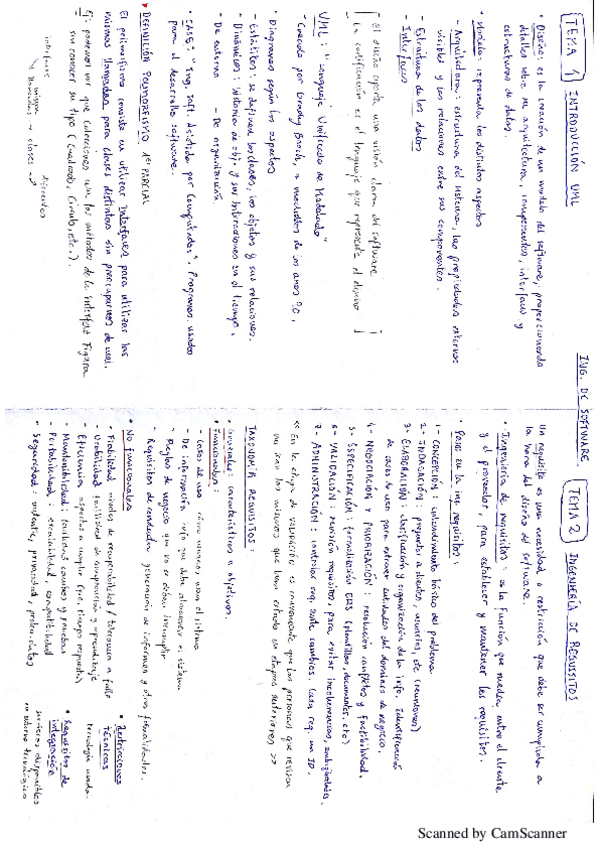 ING. DE SOFTWARE
TEMA 1 INTRODUCCIÓN UML
• Diseño: es la creación de un modelo del software, proporcionando
detalles sobre su arquitectura, componentes, interfaces y
estructuras de datos.
• Modelo: representa los distintos aspectos
- Arquitectura: estructura del sistema, las propiedades externas
visibles y sus relaciones entre sus componentes.
- Estructura de los datos
- Interfaces
El diseño aporta una visión clara del software
La codificación es el lenguaje que representa el diseño
UML: "Lenguaje Unificado de Modelado"
"Creado por Grady Booch, a mediados de los años 90.
• Diagramas según los aspectos
- Estáticos: se definen las clases, los objetos y sus relaciones.
- Dinámicos: historia de obj. y sus interacciones en el tiempo.
- De entorno - De organización.
• CASE: "Ing. Soft. Asistida por Computador". Programas usados
para el desarrollo software.
• DEFINICIÓN POLIMORFISMO 1º PARCIAL
El polimorfismo consiste en utilizar Interfaces para utilizar las
mismas llamadas para clases distintas sin preocuparnos de cual.
Ej: podemos ver que calcularemos con los métodos de la interfaz Figura
sin conocer su tipo (Cuadrado, Circulo, etc.).
interfaces
misma
llamadas → clases
diferentes
TEMA 2 INGENIERÍA DE REQUISITOS
Un requisito es una necesidad o restricción que debe ser cumplida a
la hora del diseño del software.
• Ingeniería de requisitos: es la función que media entre el cliente
y el proveedor, para establecer y mantener los requisitos.
• Pasos en la ing. requisitos:
1- CONCEPCIÓN: entendimiento básico del problema
2- INDAGACIÓN: preguntas a clientes, usuarios, etc (reuniones)
3- ELABORACIÓN: clasificación y organización de la info. Identificación
de casos de uso para extraer entidades del dominio de negocio.
4- NEGOCIACIÓN Y PRIORIZACIÓN: resolución conflictos y factibilidad.
5- ESPECIFICACIÓN: formalización ERS (plantillas, documentos, etc)
6- VALIDACIÓN: revisión requisitos, para evitar incoherencias, ambigüedades.
7- ADMINISTRACIÓN: controlar req. ante cambios. Cada req. un ID.
<< En la etapa de validación es conveniente que las personas que revisen
no sean las mismas que han estado en etapas anteriores >>
TAXONOMÍA REQUISITOS:
• Generales: características u objetivos.
• Funcionales:
- Casos de uso: cómo usarán el sistema
- De información: info que debe almacenar el sistema
- Reglas de negocio que no se deben incumplir
- Requisitos de conducta: generación de informes y otras funcionalidades.
• No funcionales
- Fiabilidad: niveles de recuperabilidad / tolerancia a fallo
- Usabilidad: facilidad de comprensión y aprendizaje
- Eficiencia: aspectos a cumplir (por tiempo respuesta)
- Mantenibilidad: facilidad cambios y pruebas
- Portabilidad: escalabilidad, compatibilidad
- Seguridad: privacidad
• Restricciones
técnicas:
tecnología usada.
• Requisitos de
integración:
servicios disponibles
en entorno tecnológico
Scanned by CamScanner